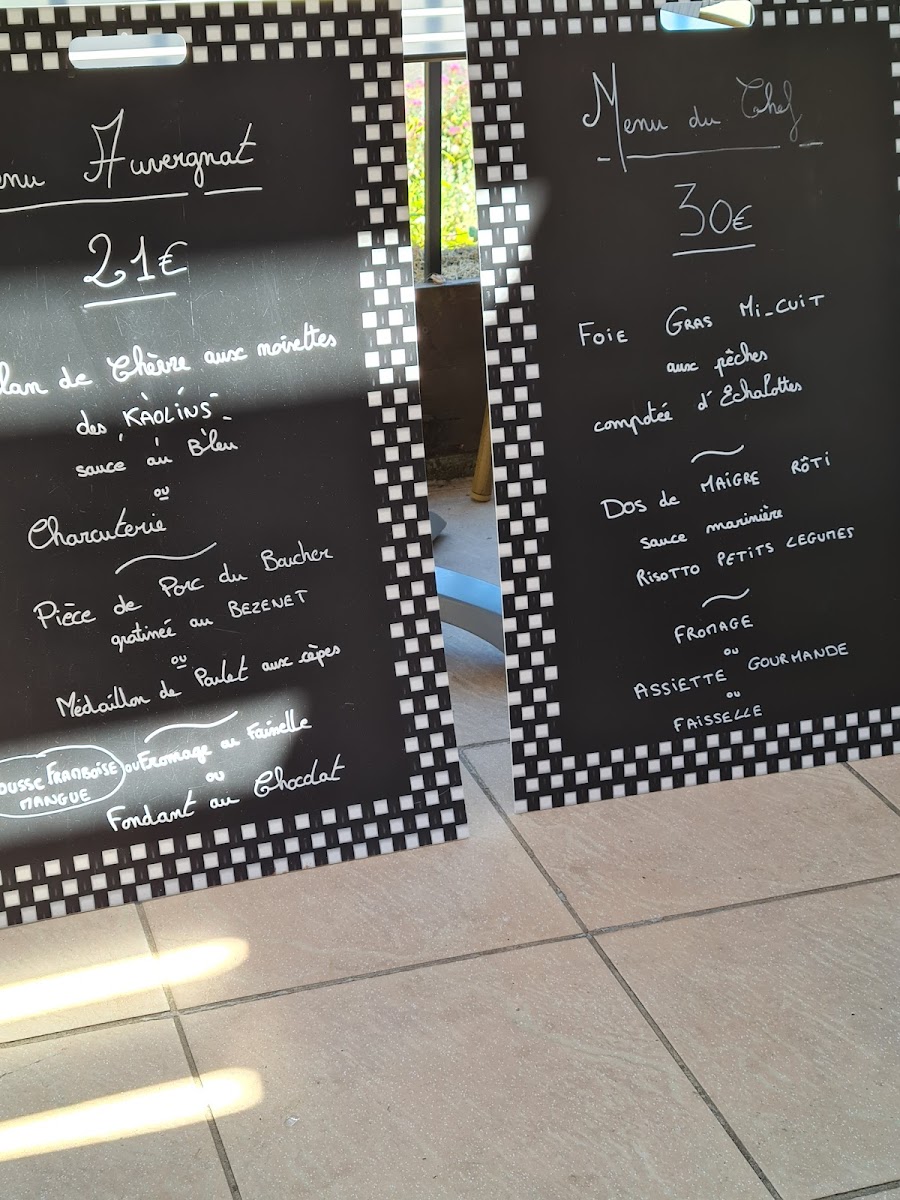 enu Auvergnat
21€
lan de Chèvre aux noisettes
des KAOLINS
sauce au Bleu
ou
Charcuterie
Pièce de Porc du Boucher
gratinée au BEZENET
ou
Médaillon de Poulet aux cèpes
OUSSE FRAMBOISE ou Fromage ou Faisselle
MANGUE
ou
Fondant au Chocolat
Menu du Chef
30€
FOIE GRAS MI-CUIT
aux pêches
compotée d'Echalottes
DOS de MAIGRE RÔTI
sauce marinière
RISOTTO PETITS LEGUMES
FROMAGE
ou
ASSIETTE GOURMANDE
ou
FAISSELLE